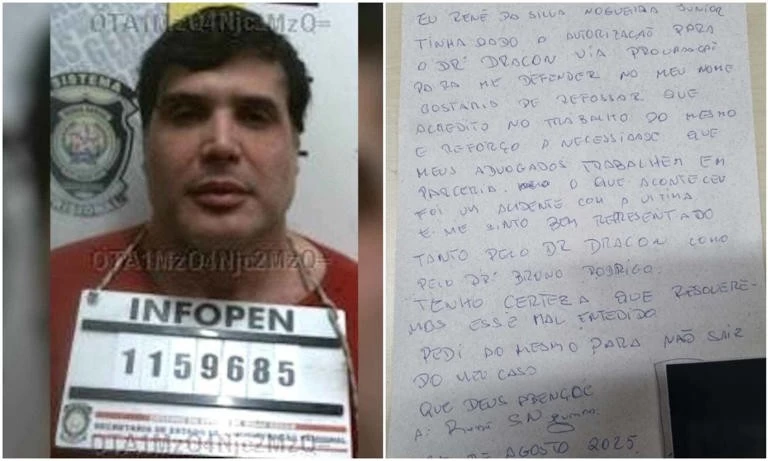 OTA1MzQ4Njc2MzQ=
SISTEMA
OTA1MzQ4Njc2MzQ=
INFOPEN
1159685
SECRETARIA DE ESTADO
OTA1MzQ4Njc2MzQ=
EU RENÊ DA SILVA NOGUEIRA JUNIOR
TINHA DADO A AUTORIZAÇÃO PARA
O DR DRACON VIA PROCURAÇÃO
PARA ME DEFENDER NO MEU NOME
GOSTARIA DE REFOSSAR QUE
ACREDITO NO TRABALHO DO MESMO
E REFORÇO A NECESSIDADE QUE
MEUS ADVOGADOS TRABALHEM EM
PARCERIA. O QUE ACONTECEU
FOI UM ACIDENTE COM A VITIMA
E ME SINTO BEM REPRESENTADO
TANTO PELO DR DRACON COMO
PELO DR: BRUNO RODRIGO.
TENHO CERTEZA QUE RESOLVERE-
MOS ESSE MAL ENTEDIDO
PEDI AO MESMO PARA NÃO SAIR
DO MEU CASO
QUE DEUS ABENÇOE
A: Renê SN
DE AGOSTO 2025.